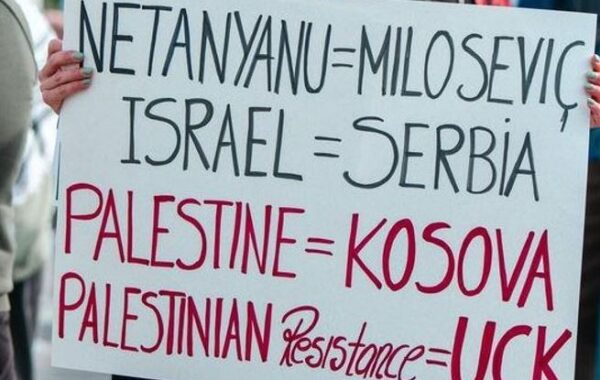 NETANYANU=MILOSEVIÇ
ISRAEL = SERBiA
PALESTINE = KOSOVA
PALESTINIAN Resistance = UCK